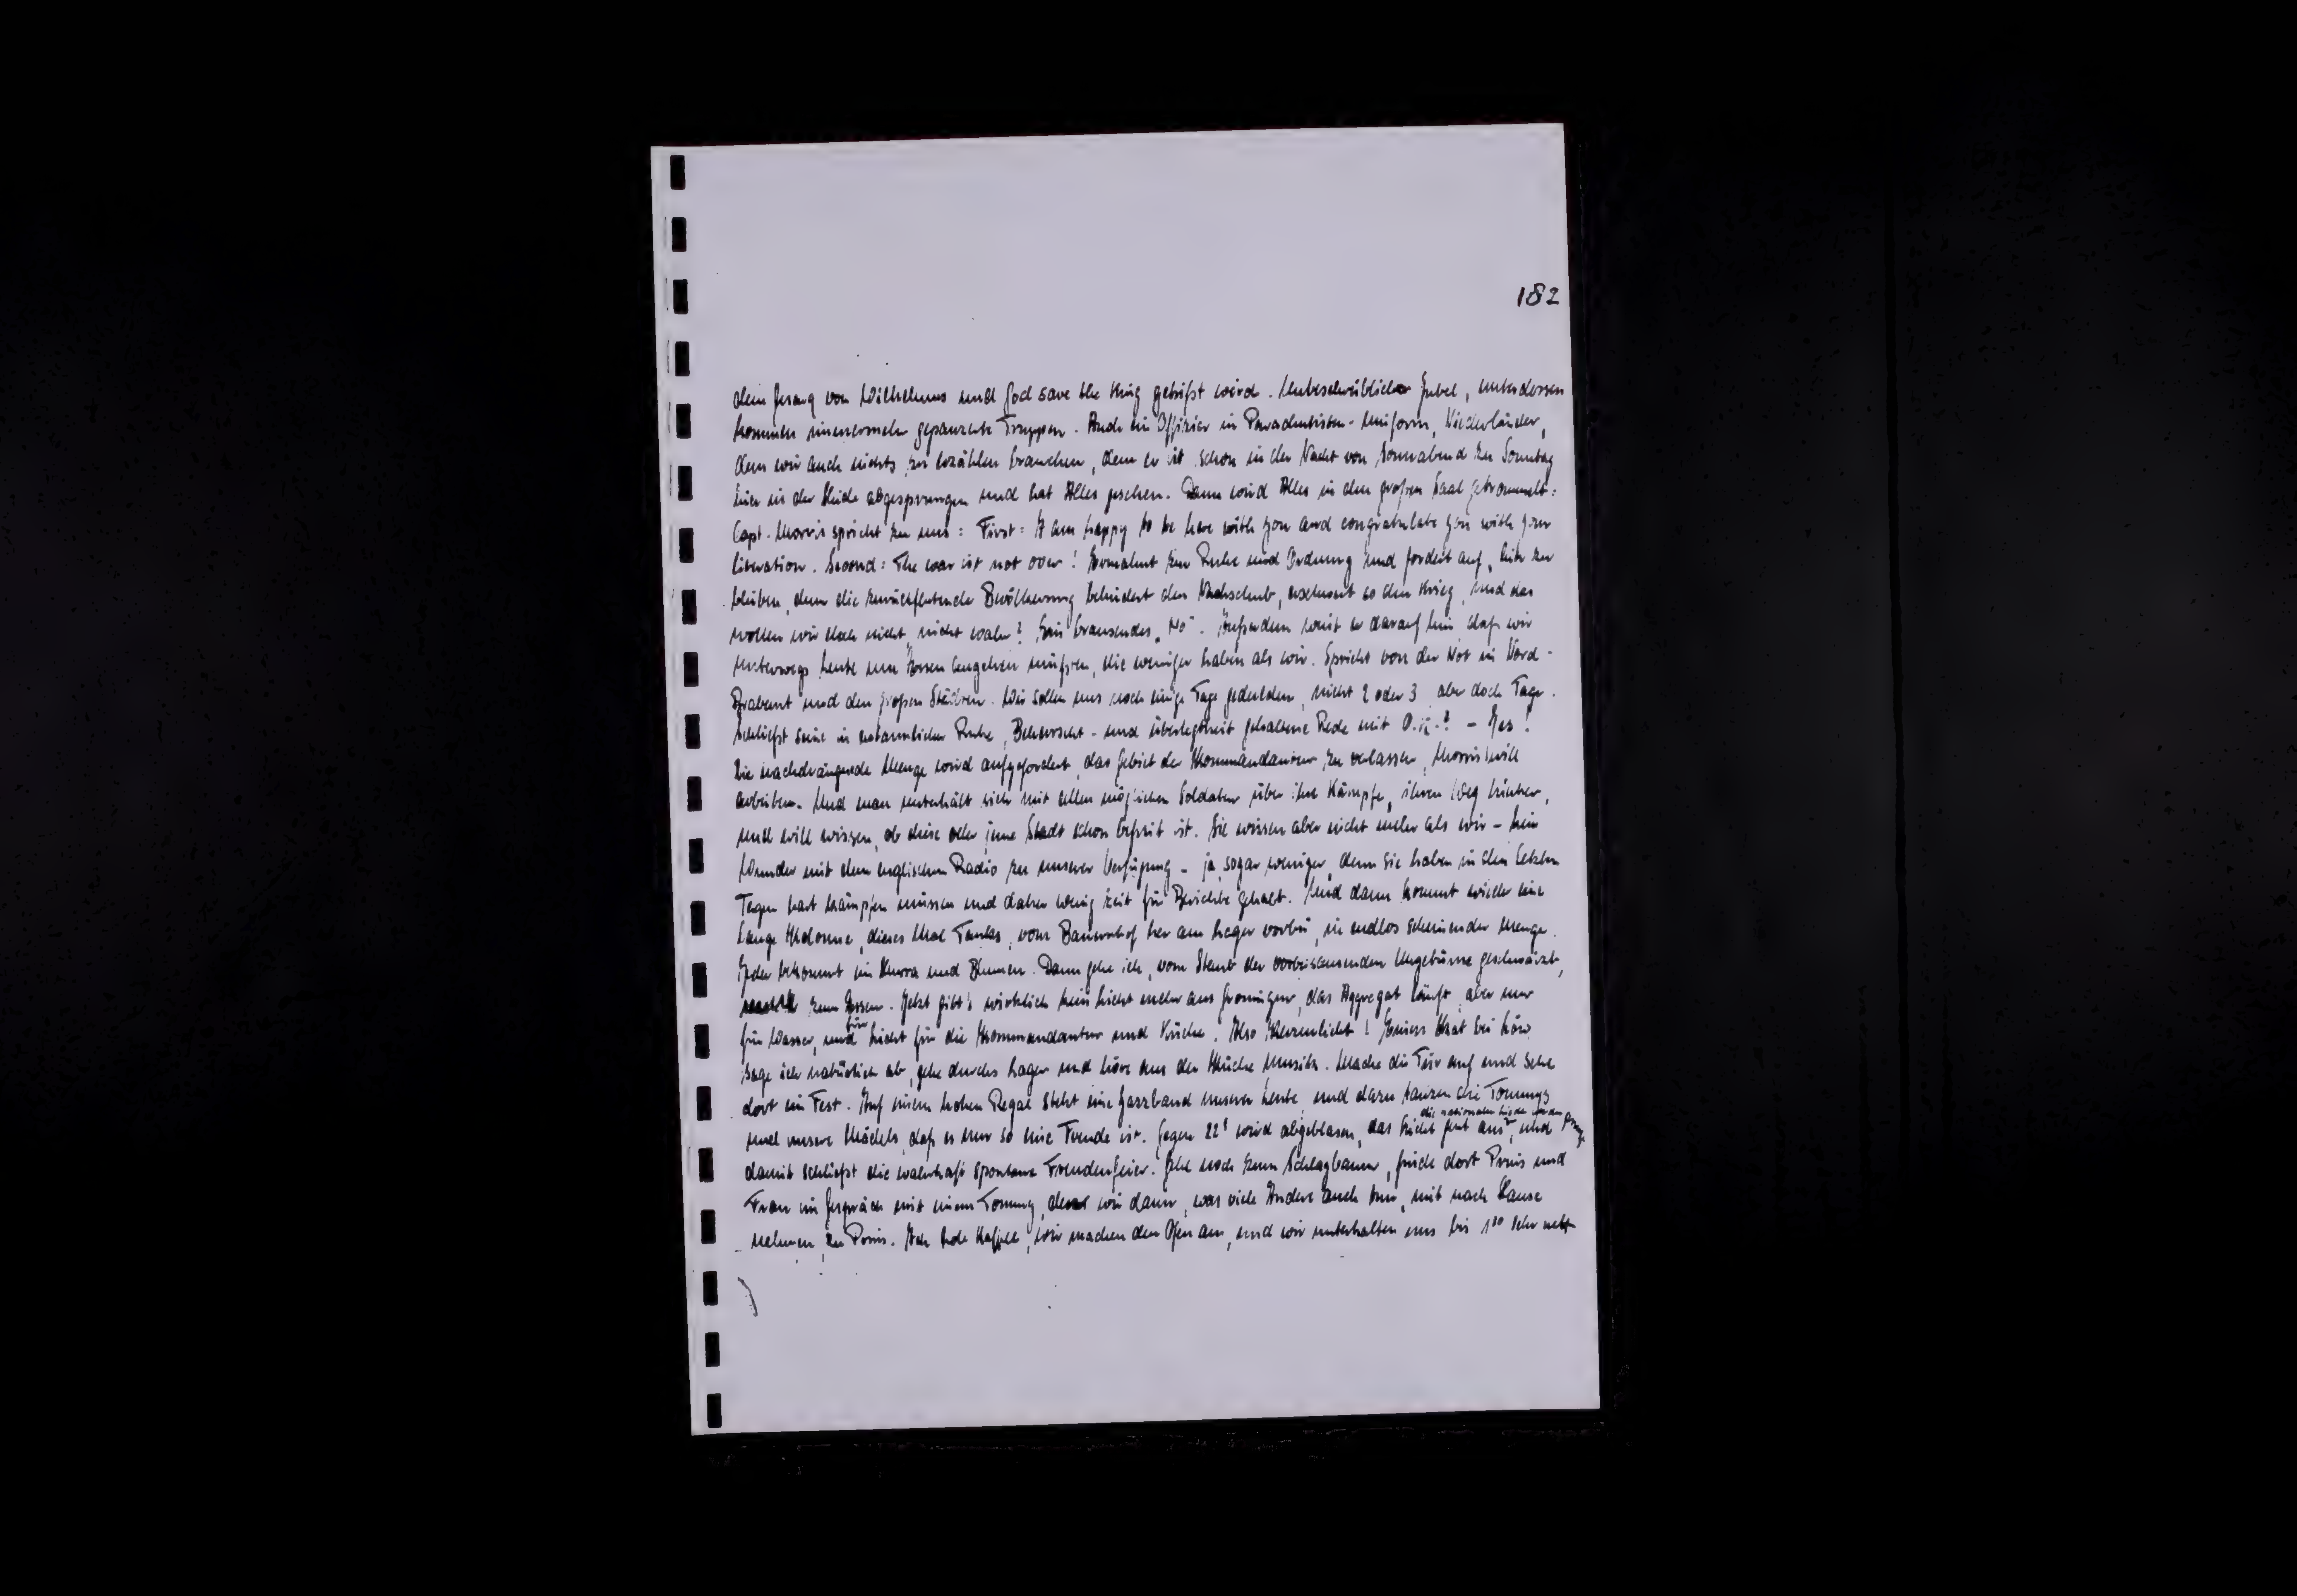 182
dem Gesang von Wilhelmus und God save the King gehißt wird. Unbeschreiblicher Jubel, unterdessen
kommen immermehr gepanzerte Truppen. Auch ein Offizier in Parachutisten-Uniform, Niederländer,
dem wir auch nichts zu erzählen brauchen, denn er ist schon in der Nacht von Sonnabend zu Sonntag
hier in der Heide abgesprungen und hat Alles gesehen. Dann wird Alles in den großen Saal getrommelt:
Capt. Morris spricht zu uns: First: I am happy to be here with you and congratulate you with your
liberation. Second: The war ist not over! Ermahnt zur Ruhe und Ordnung und fordert auf, hier zu
bleiben, denn die zurückflutende Bevölkerung behindert den Nachschub, erschwert so den Krieg, und das
wollen wir doch nicht, nicht wahr? Ein brausendes "No". Außerdem weist er darauf hin, daß wir
unterwegs Leute um Essen angehen müßten, die weniger haben als wir. Spricht von der Not in Nord-
Brabant und den großen Städten. Wir sollen uns noch einige Tage gedulden, nicht 2 oder 3, aber doch Tage.
Schließt seine in erstaunlicher Ruhe, Beherrscht- und Überlegtheit gehaltene Rede mit O.K.? - Yes!
Die nachdrängende Menge wird aufgefordert, das Gebiet der Kommandantur zu verlassen, Morris will
arbeiten. Und man unterhält sich mit allen möglichen Soldaten über ihre Kämpfe, ihren Weg hierher,
und will wissen, ob diese oder jene Stadt schon befreit ist. Sie wissen aber nicht mehr als wir - kein
Wunder mit dem englischen Radio zu unserer Verfügung - ja, sogar weniger, denn sie haben in den letzten
Tagen hart kämpfen müssen und daher wenig Zeit für Berichte gehabt. Und dann kommt wieder eine
lange Kolonne, dieses Mal Tanks, vom Bauernhof her am Lager vorbei, in endlos scheinender Menge.
Jeder bekommt ein Hurra und Blumen. Dann gehe ich, vom Staub der vorbeisausenden Ungetüme geschwärzt,
zum Essen. Jetzt gibt's wirklich kein Licht mehr aus Groningen, das Aggregat läuft, aber nur
für Wasser, und für Licht für die Kommandantur und Küche. Also Kerzenlicht!
sage ich natürlich ab, gehe durchs Lager und höre aus der Küche Musik. Mache die Tür auf und sehe
dort ein Fest. Auf einem hohen Regal steht eine Jazzband unserer Leute, und dazu tanzen die Tommys
und unsere Mädels, daß es nur so eine Freude ist. Gegen 22 wird abgeblasen, das Licht geht aus, die nationalen Lieder werden gesungen und
damit schließt die wahrhaft spontane Freudenfeier. Gehe noch zum Schlagbaum, finde dort Prins und
Frau im Gespräch mit einem Tommy, den wir dann, was viele Andere auch tun, mit nach Hause
nehmen, zu Prins. Ich hole Kaffee, wir machen den Ofen an, und wir unterhalten uns bis 1³⁰ Uhr nett